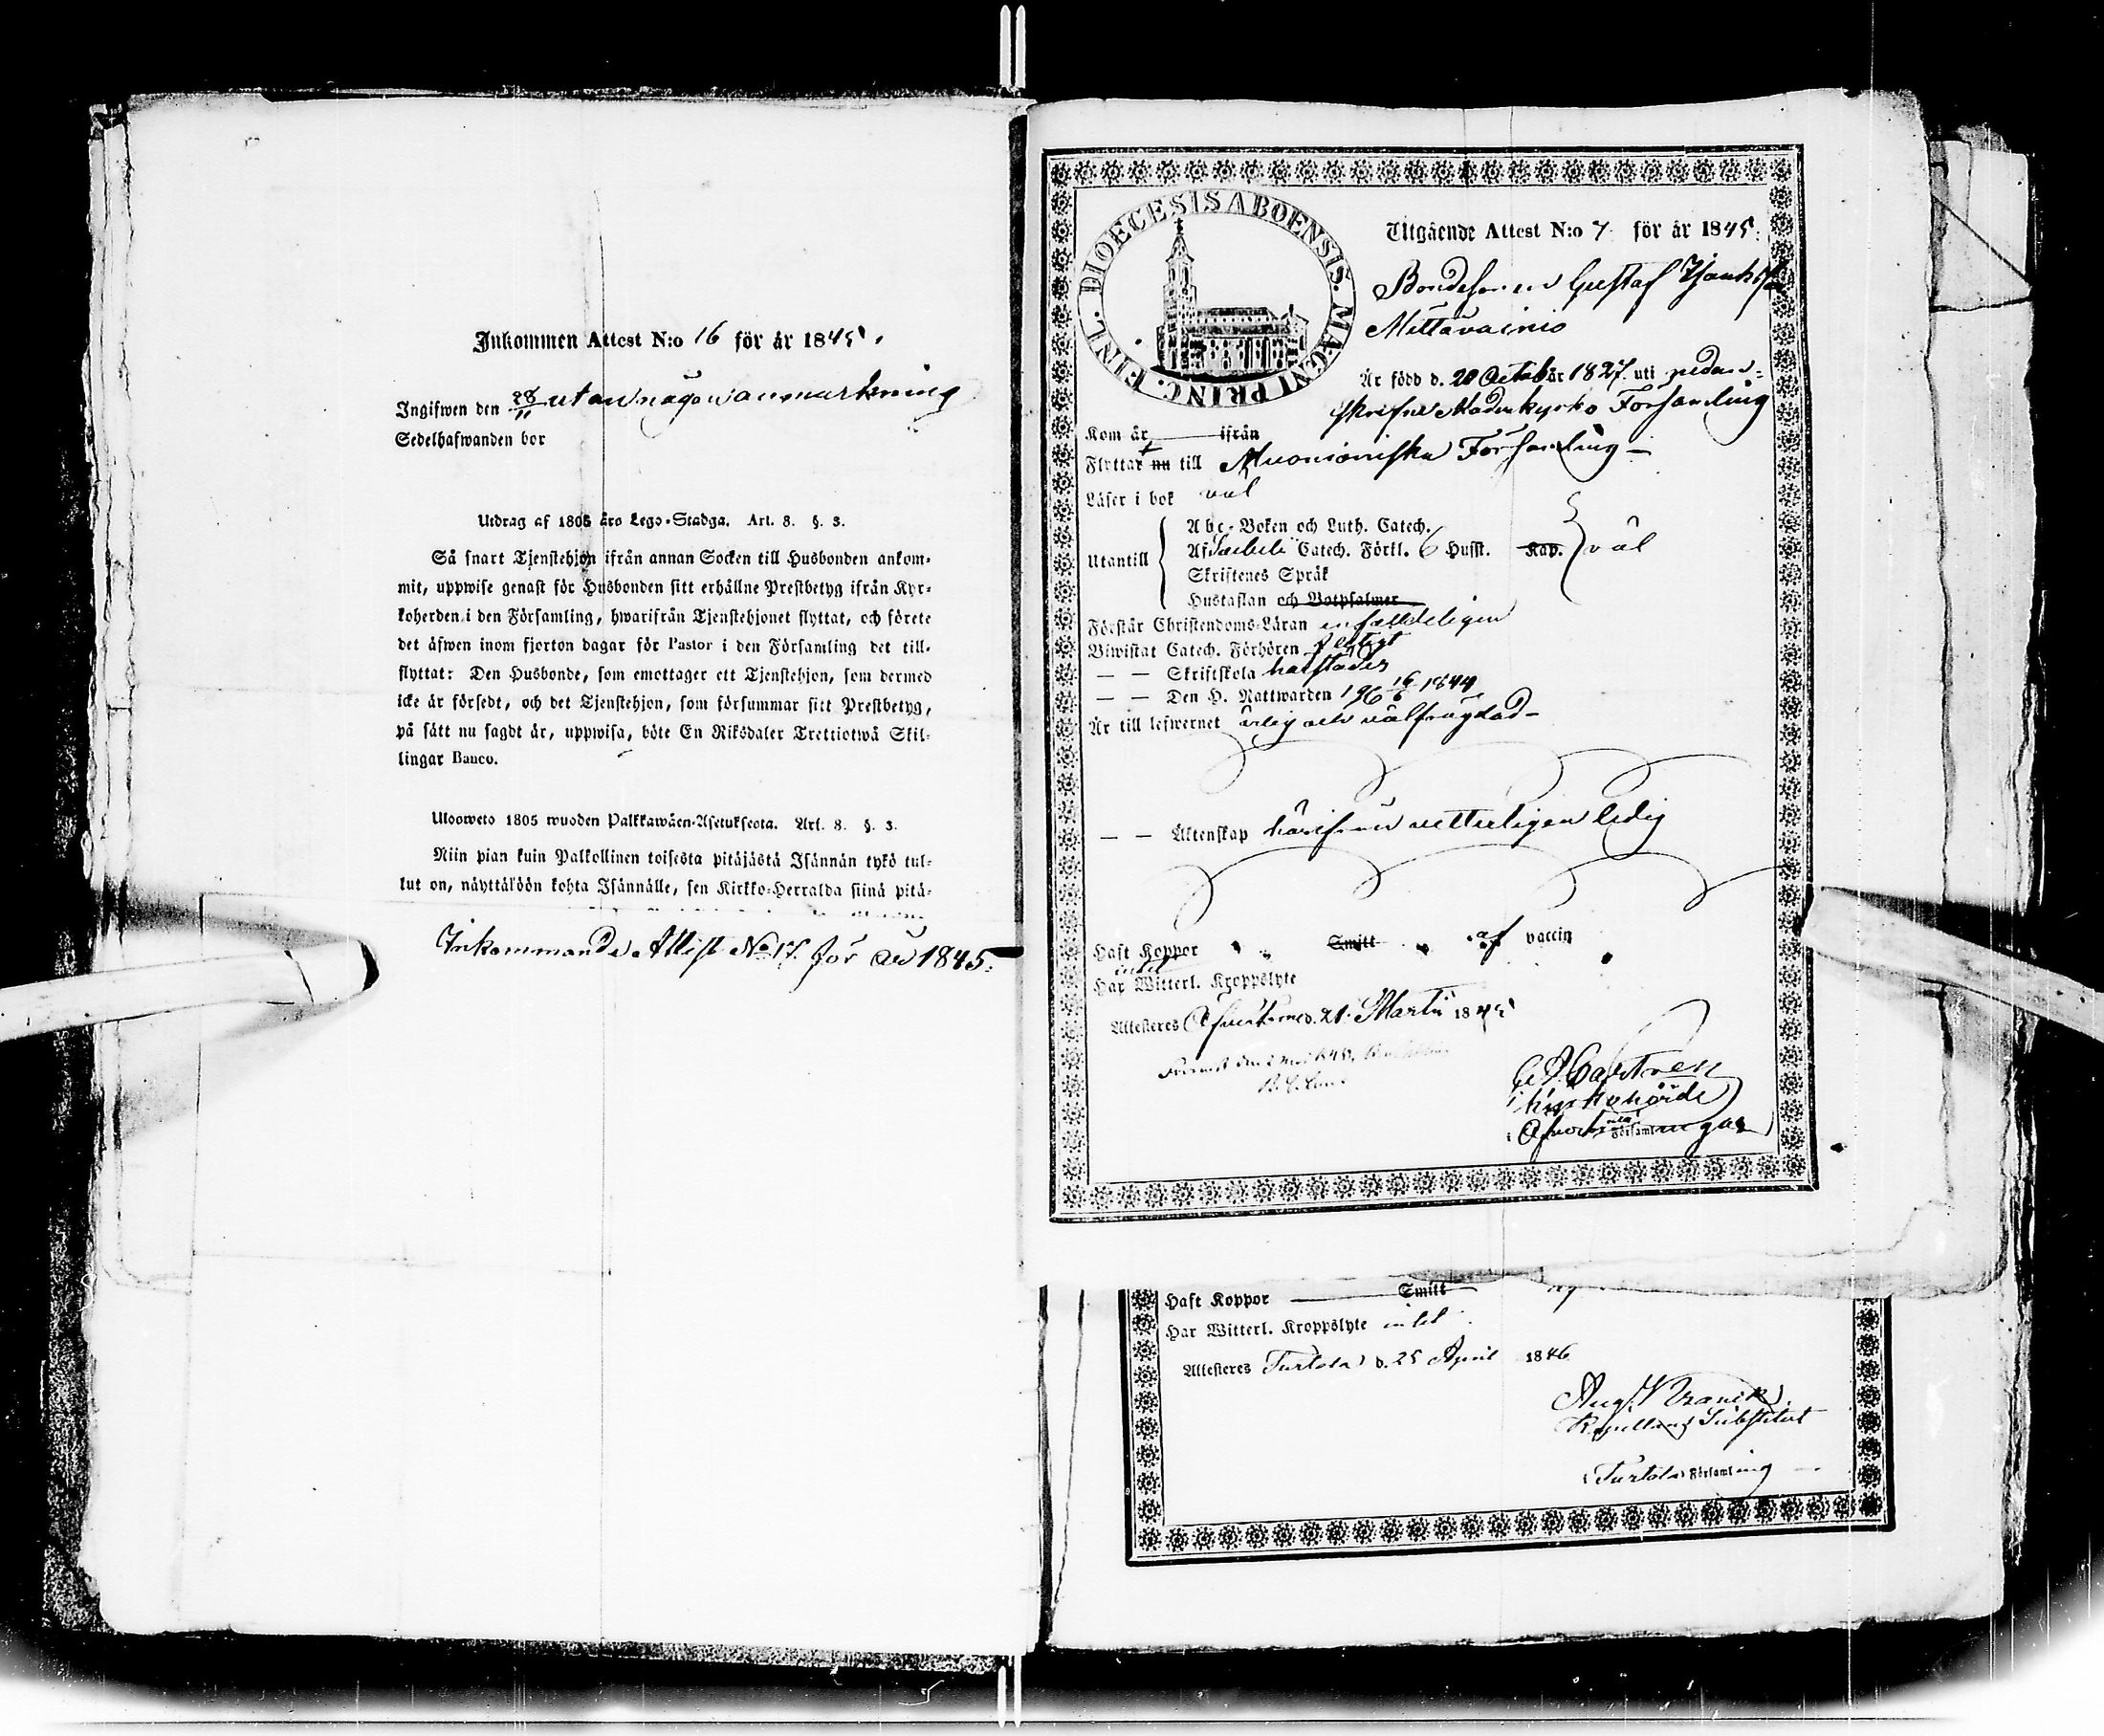 Inkommen Attest N:o 16 för år 1845.
Ingifwen den 28/11 utan någon anmärkning
Sedelhafwanden bor
Utdrag af 1805 års Lego-Stadga. Art. 8. §. 3.
Så snart Tjenstehjon ifrån annan Socken till Husbonden ankom-
mit, uppwise genast för Husbonden sitt erhållne Prestbetyg ifrån Kyr-
koherden i den Församling, hwarifrån Tjenstehjonet flyttat, och förete
det äfwen inom fjorton dagar för Pastor i den Församling det till-
flyttat: Den Husbonde, som emottager ett Tjenstehjon, som dermed
icke är försedt, och det Tjenstehjon, som försummar sitt Prestbetyg,
på sätt nu sagdt är, uppwisa, böte En Riksdaler Trettiotwå Skil-
lingar Banco.
Uloosweto 1805 wuoden Palkkawäen-Asetuksesta. Art. 8. §. 3.
Niin pian kuin Palkollinen toisesta pitäjästä Isännän tykö tul-
lut on, näyttäköön kohta Isännälle, sen Kirkko-Herralda siinä pitä-
Inkommande Attest No 17. för år 1845.
DIOECESIS ABOENSIS. MAGNI PRINC. FINL.
Utgående Attest N:o 7. för år 1845.
Bondesonen Gustaf
Mettävainio
Är född d. 20 October 1827. uti nedan-
skrifne Moderkyrko Församling
Kom år ifrån
Flyttar nu till Muonioniska Församling
Läser i bok väl
Utantill
Abc-Boken och Luth. Catech.
Af Catech. Förkl. 6 Hufst. Kap. väl
Skriftenes Språk
Hustaflan och Botpsalmer
Förstår Christendoms-Läran enfaldeligen
Biwistat Catech. Förhören flitigt
— — Skriftskola härstädes
— — Den H. Nattwarden 16/6 1844
Är till lefwernet ärlig och välfrägdad
— — Äktenskap härifrån vetterligen ledig
Haft Koppor Smitt af vaccin
Har Witterl. Kroppslyte intet
Attesteras d. 21. Martii 1845
Castren
Kyrkoherde
Församlingar
Haft Koppor Smitt
Har Witterl. Kroppslyte intet
Attesteras Turtola d. 25 April 1846
Aug.
Kapellans Substitut
i Turtola Församling